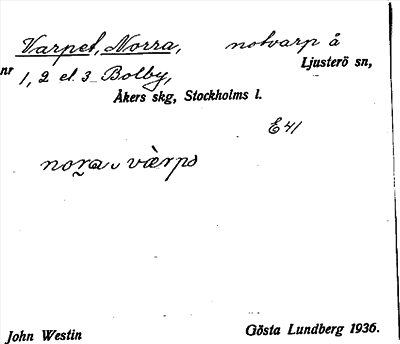 Varpet, Norra, notvarp å
Ljusterö sn,
nr 1, 2 el. 3 Bolby,
Åkers skg, Stockholms l.
E 41
nora värpə
John Westin
Gösta Lundberg 1936.